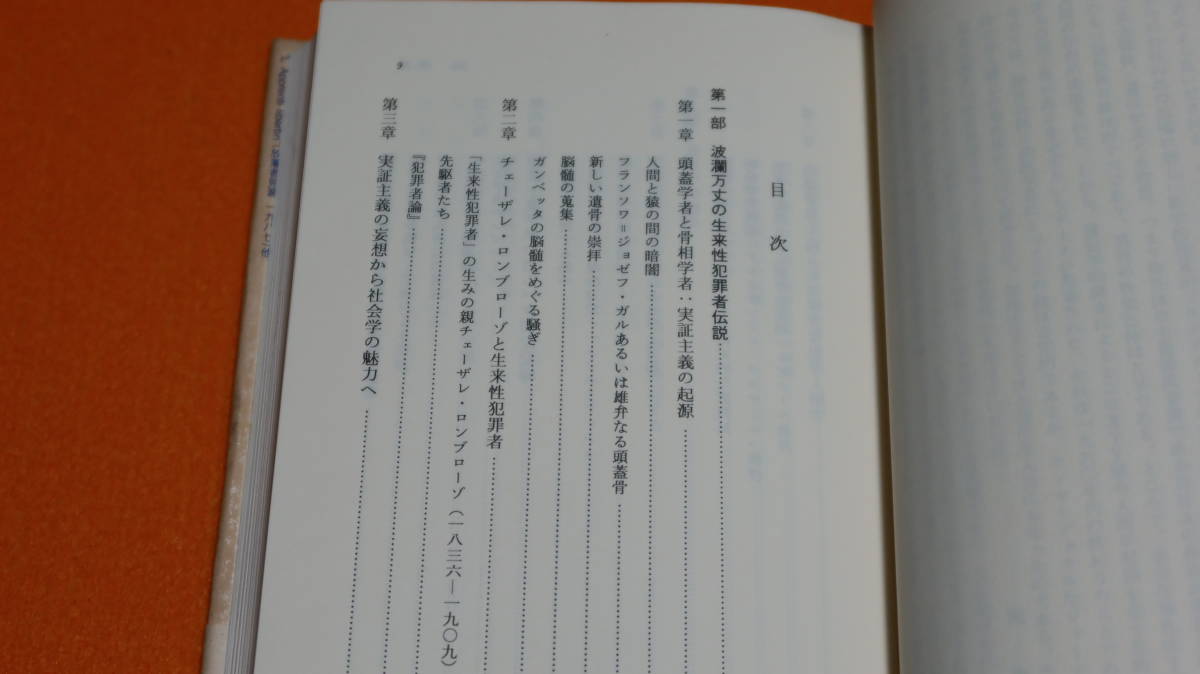 目次
第一部 波瀾万丈の生来性犯罪者伝説
第一章 頭蓋学者と骨相学者：実証主義の起源
人間と猿の間の暗闇
フランソワ＝ジョゼフ・ガルあるいは雄弁なる頭蓋骨
新しい遺骨の崇拝
脳髄の蒐集
ガンベッタの脳髄をめぐる騒ぎ
第二章 チェーザレ・ロンブローゾと生来性犯罪者
「生来性犯罪者」の生みの親チェーザレ・ロンブローゾ（一八三六―一九〇九）
先駆者たち
『犯罪者論』
第三章 実証主義の妄想から社会学の魅力へ
9